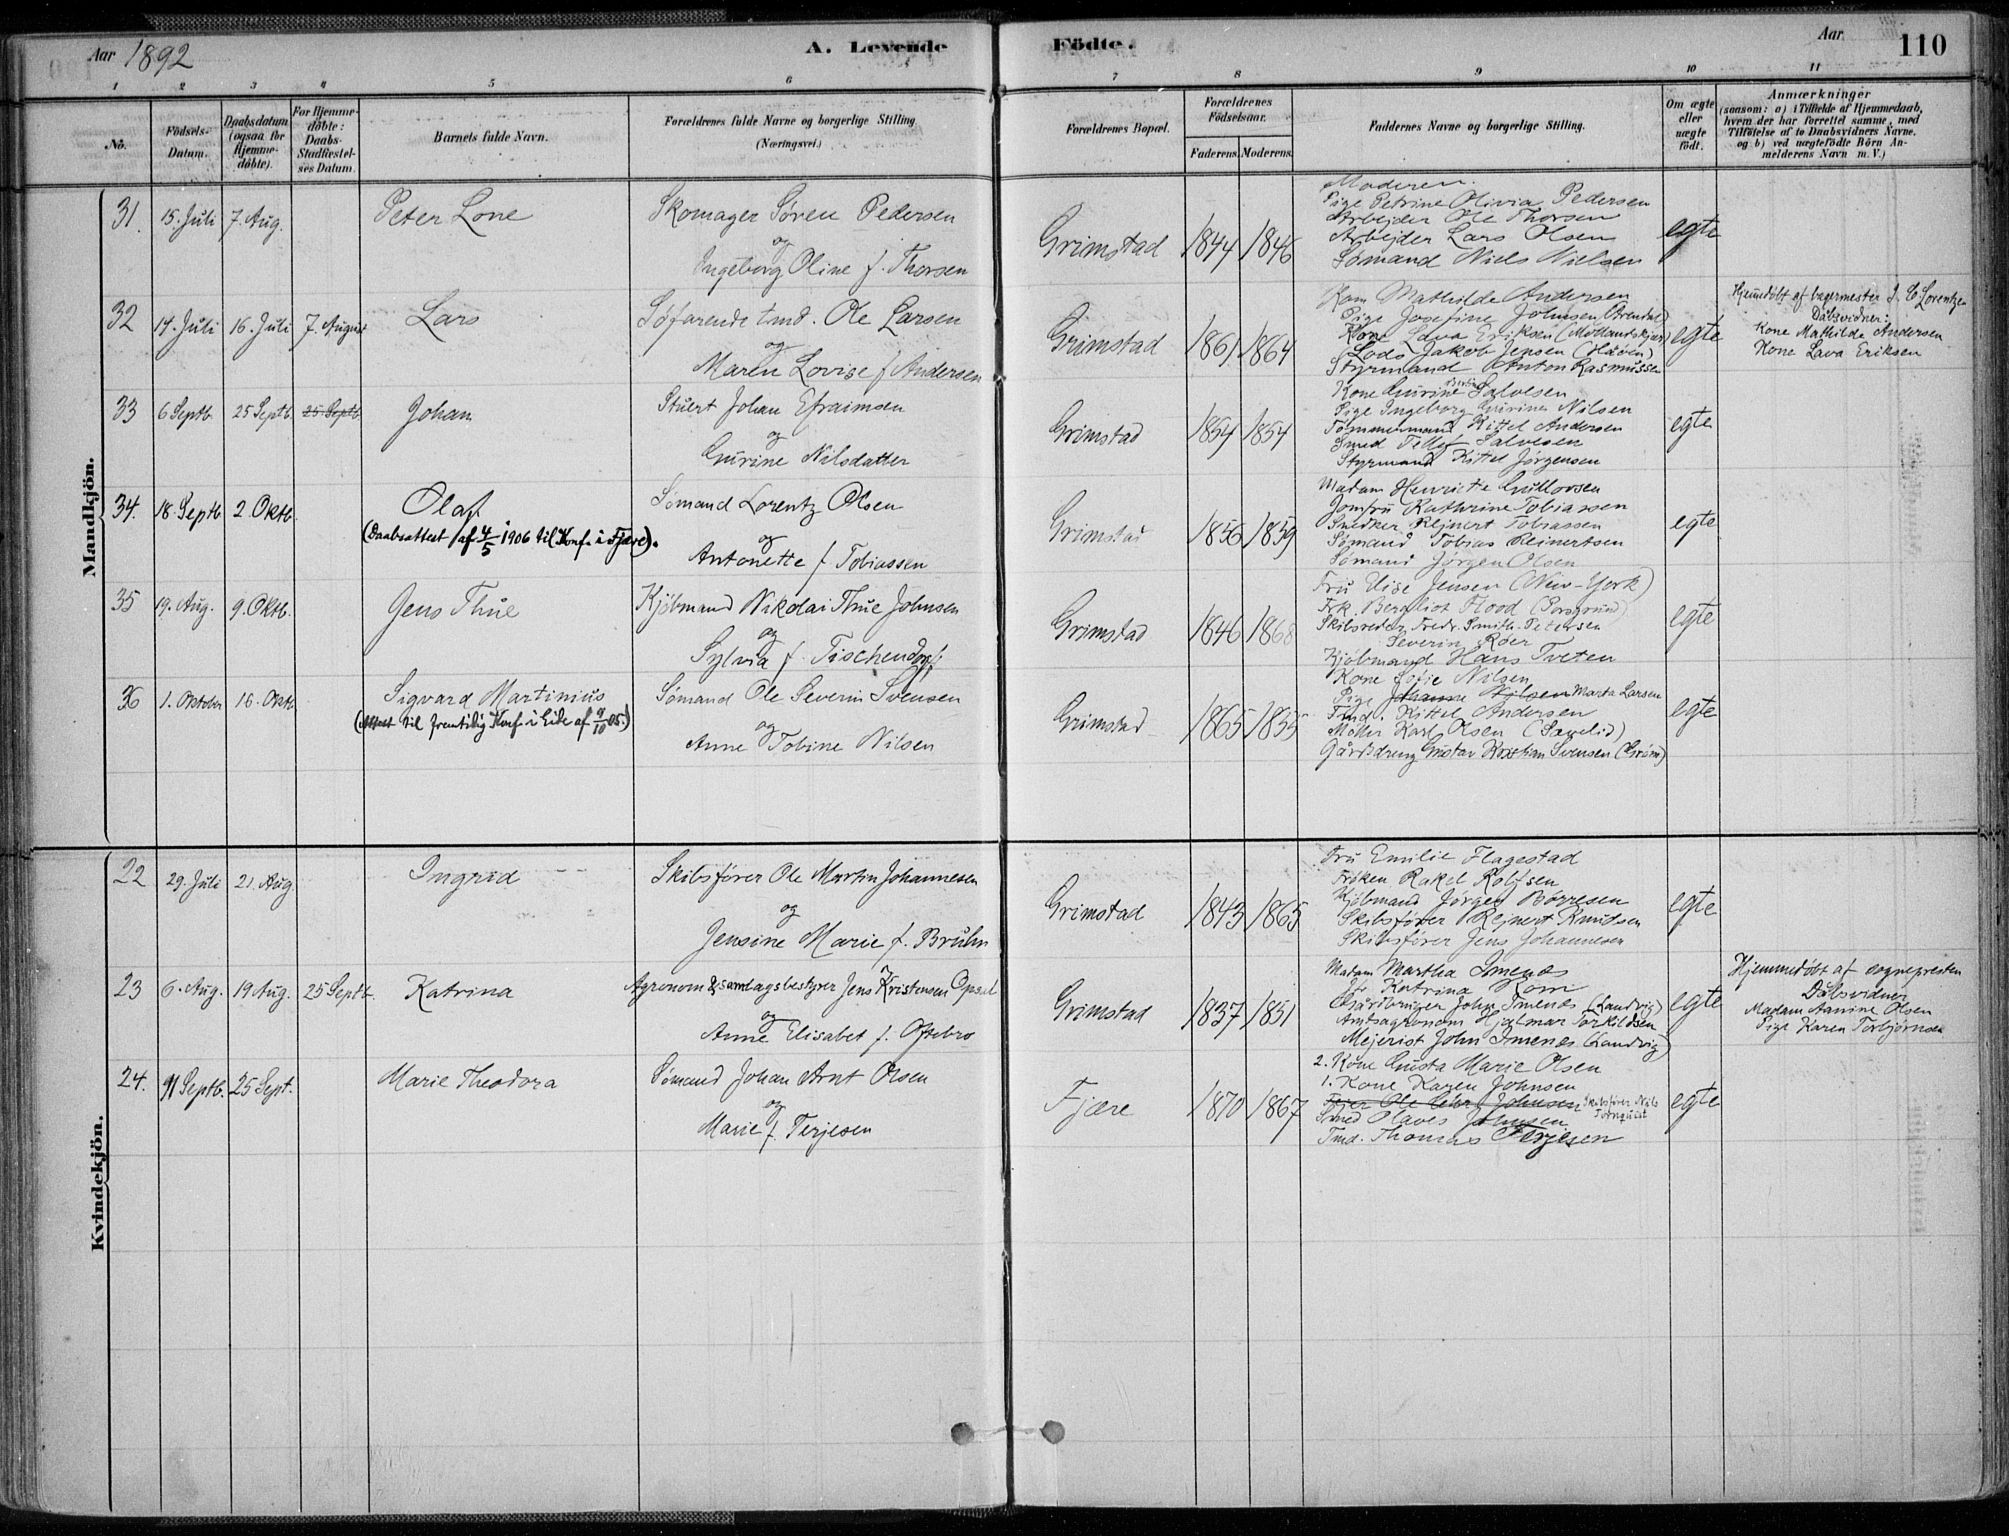 Aar 1892
A. Levende Födte.
Aar
110
1 2 3 4 5 6 7 8 9 10 11
No.
Födsels-Datum.
Daabsdatum (ogsaa for Hjemme-döbte).
For Hjemme-döbte: Daabs-Stadfæstel-ses Datum.
Barnets fulde Navn.
Forældrenes fulde Navne og borgerlige Stilling (Næringsvei.)
Forældrenes Bopæl.
Forældrenes Födselsaar.
Faderens. Moderens.
Faddernes Navne og borgerlige Stilling.
Om ægte eller uægte födt.
Anmærkninger
(saasom: a) i Tilfælde af Hjemmedaab,
hvem der har forrettet samme, med
Tilföielse af to Daabsvidners Navne.
og b) ved uægtefödte Börn An-
melderens Navn m. V.)
Mandkjön.
31. 15. Juli 7. Aug. Peter Lone
Skomager Søren Pedersen
og
Ingeborg Oline f. Thorsen
Grimstad 1844 1846
Moderen.
Pige Petrine Olivia Pedersen
Arbejder Ole Thorsen
Arbejder Lars Olsen
Sømand Niels Nielsen
egte
32 14. Juli 16. Juli 7. August Lars
Søfarende tmd. Ole Larsen
og
Maren Lovise f Andersen
Grimstad 1861 1864
Kone Mathilde Andersen
Pige Josefine Johnsen (Arendal)
Kone Lava Eriksen
Lods Jakob Jensen
Styrmand Anton Rasmussen
egte
Hjemdøbt af bagermester J. C Lorentzen
Dåbsvidner:
Kone Mathilde Andersen
Kone Lava Eriksen
33 6 Septb. 25 Septb. 25 Septb. Johan
Stuert Johan Efraimsen
og
Gurine Nilsdatter
Grimstad 1854 1854
Kone Gurine Salvesen
Pige Ingeborg Gurine Nilsen
Tømmermand Kittel Andersen
Smed Tellef Salvesen
Styrmand Kittel Jørgensen
egte
34. 18. Septb 2. Oktb. Olaf
(Daabsattest af 4/5 1906 til Konf. i Fjære).
Sømand Lorentz Olsen
og
Antonette f Tobiassen
Grimstad 1856 1859
Madam Henriette Gullovsen
Jomfru Kathrine Tobiassen
Snedker Rejnert Tobiassen
Sømand Tobias Reinertsen
Sømand Jørgen Olsen
egte
35 19. Aug. 9. Oktb. Jens Thue
Kjøbmand Nikolai Thue Johnsen
og
Sylvia f. Tischendorf
Grimstad 1846 1868
Fru Elise Jensen (New-York)
Frk. Bergliot Flood (Porsgrund)
Skibsreder Fredr. Smith-Petersen
Severin Roer
Kjøbmand Hans Tveten
egte
36 1. Oktober 16. Oktb. Sigvard Martinius
(Attest til fremtidig Konf. i Eide af 9/10 05.)
Sømand Ole Severin Svensen
og
Anne Tobine Nilsen
Grimstad 1865 1855
Kone Sofie Nilsen
Pige Johanne Nilsen Marta Larsen
Tmd. Kittel Andersen
Møller Karl Olsen
Gårdsdreng Gustav Kristian Svensen
egte
Kvindekjön.
22 29. Juli 21. Aug Ingrid
Skibsfører Ole Martin Johannesen
og
Jensine Marie f. Bruhn
Grimstad 1843 1865
Fru Emilie Flagestad
Frøken Rakel Rolfsen
Kjøbmand Jørgen Børresen
Skibsfører Rejnert Knudsen
Skibsfører Jens Johannesen
egte
23 6. Aug. 19 Aug. 25 Septb. Katrina
Agronom & samlagsbestyrer Jens Kristensen Opsal
og
Anne Elisabet f. Oftebro
Grimstad 1837 1851
Madam Martha Imenes
Fr Katrina Rom
Gårdbruger John Imenes (Landvig)
Amtsagronom Hjalmar Torkildsen
Mejerist John Imenes (Landvig)
egte
Hjemmedøbt af sognepresten
Dåbsvidner
Madam Aanine Olsen
Pige Karen Torbjørnsen
24. 91 Septb. 25 Sept. Marie Theodora
Sømand Johan Arnt Olsen
og
Marie f. Terjesen
Fjære 1870 1867
2. Kone Gusta Marie Olsen
1. Kone Karen Johnsen
Ole Chr. Johnsen Skibsfører Nils Tørnquist
Smed Olaves Johnsen
Tmd. Thomas Terjesen
egte